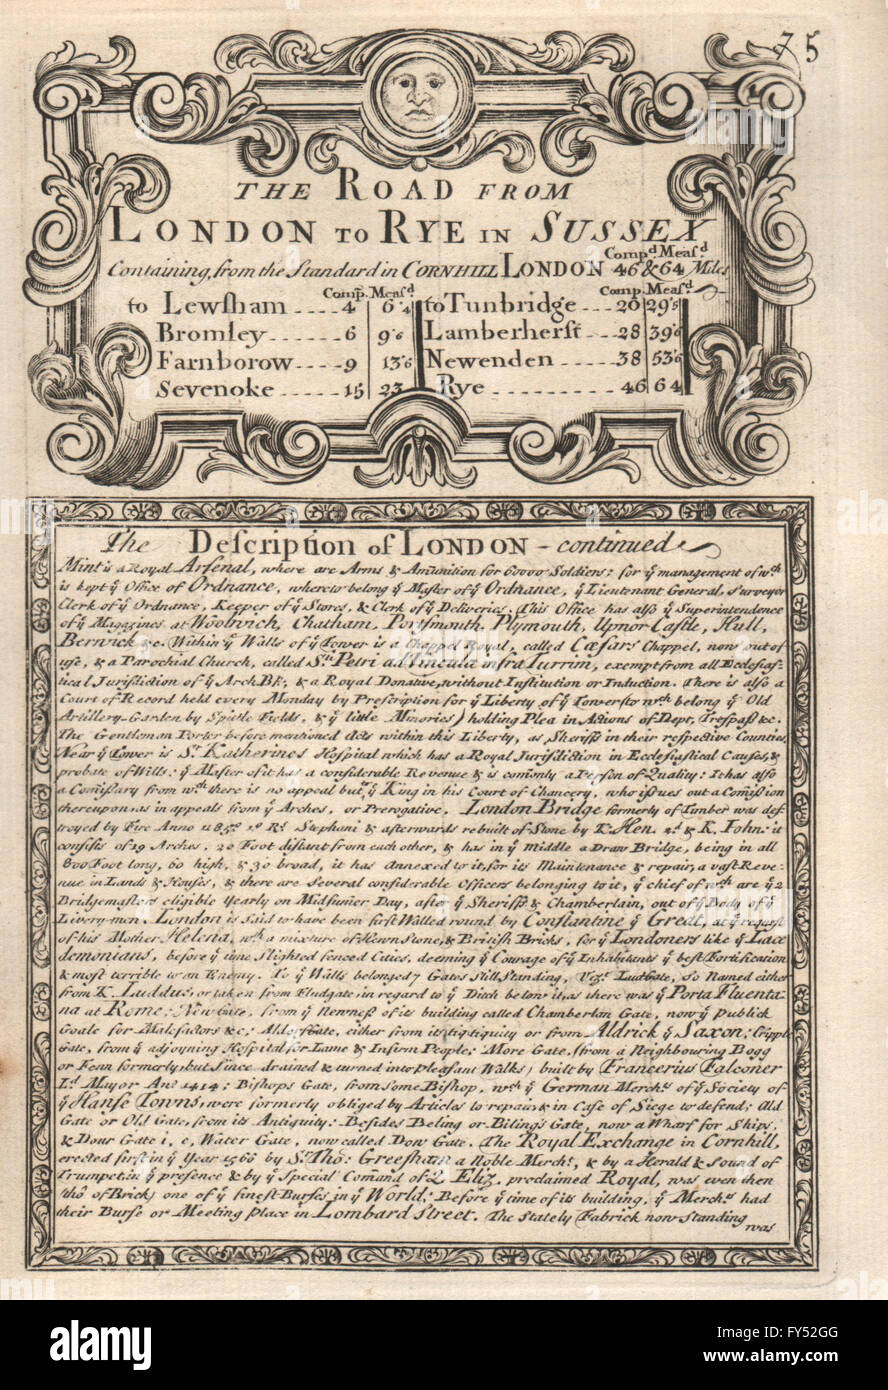 75
THE ROAD FROM
LONDON TO RYE IN SUSSEX
Comp.d Meas.d
Containing, from the Standard in CORNHILL LONDON 46 & 64 Miles
Comp. Meas.d Comp. Meas.d
to Lewsham 4 6'4 to Tunbridge 20 29'5
Bromley 6 9'6 Lamberherst 28 39'6
Farnborow 9 13'6 Newenden 38 53'6
Sevenoke 15 23 Rye 46 64
The Description of LONDON - continued
Mint is a Royal Arsenal, where are Arms & Amunition for 60000 Soldiers: for ye management of wch
is kept ye Office of Ordnance, whereto belong ye Master of ye Ordnance, ye Lieutenant General, Surveyor
Clerk of ye Ordnance, Keeper of ye Stores, & Clerk of ye Deliveries. This Office has also ye Superintendence
of ye Magazines at Woolwich, Chatham, Portsmouth, Plymouth, Upnor Castle, Hull,
Berwick &c. Within ye Walls of ye Tower is a Chappel Royal, called Cæsars Chappel, now out of
use, & a Parochial Church, called St. Petri ad Vincula infra Turrim, exempt from all Ecclesias-
tical Jurisdiction of ye Arch Bp; & a Royal Donative, without Institution or Induction. There is also a
Court of Record held every Monday by Prescription for ye Liberty of ye Tower (to wch belong ye Old
Artillery-Garden by Spittle Fields, & ye little Minories) holding Plea in Actions of Dept, Trespass &c.
The Gentleman Porter before mentioned Acts within this Liberty, as Sheriffs in their respective Counties.
Near ye Tower is St. Katherines Hospital which has a Royal Jurisdiction in Ecclesiastical Causes, &
probate of Wills: ye Master of it has a considerable Revenue & is comonly a Person of Quality: It has also
a Comissary from wch there is no appeal but ye King in his Court of Chancery, who issues out a Comission
thereupon, as in appeals from ye Arches, or Prerogative. London Bridge formerly of Timber was des-
troyed by Fire Anno 1185, 1o Ri Stephani & afterwards rebuilt of Stone by K. Hen. 2d & K. Iohn: it
consists of 19 Arches, 20 Foot distant from each other, & has in ye middle a Draw Bridge, being in all
800 Foot long, 60 high, & 30 broad, it has Annexed to it, for its Maintenance & repair, a vast Reve-
nue in Lands & Houses, & there are Several considerable Officers belonging to it, ye chief of wch are ye 2
Bridgemasters eligible Yearly on Midsumer Day, after ye Sheriffs & Chamberlain, out of ye Body of ye
Livery-men. London is Said to have been first Walled round by Constantine ye Great, at ye request
of his Mother Helena, wth a mixture of Hewn Stone, & British Bricks, for ye Londoners like ye Lace-
demonians, before ye time Slighted fenced Cities, deeming ye Courage of ye Inhabitants ye best Fortification
& most terrible to an Enemy. To ye Walls belonged 7 Gates Still Standing, Vizt. Ludgate, So Named either
from K. Luddus, or taken from Fludgate, in regard to ye Ditch below it, as there was ye Porta Fluenta-
na at Rome: New Gate, from ye Newness of its building called Chamberlan Gate, now ye publick
Goale for Malefactors &c; Aldersgate, either from its Antiquity or from Aldrick ye Saxon; Cripple
Gate, from ye adjoyning Hospital for Lame & Infirm People; More Gate, from a Neighbouring Bogg
or Fenn formerly, but Since drained & turned into pleasant Walks) built by Francerius Falconer
Ld. Mayor Ano. 1414: Bishops Gate, from some Bishop, wch ye German Merchts of ye Society of
ye Hanse Towns, were formerly obliged by Articles to repair, & in Case of Siege to defend; Ald
Gate or Old Gate, from its Antiquity: Besides Beling or Bilings Gate, now a Wharf for Ships,
& Dour Gate i, e, Water Gate, now called Dow Gate. The Royal Exchange in Cornhill,
erected first in ye Year 1566 by Sr. Tho: Greesham a Noble Mercht, & by a Herald & Sound of
Trumpet in ye presence & by ye Special Comand of Q. Eliz. proclaimed Royal, was even then
(tho' of Brick) one of ye finest Burses in ye World: Before ye time of its building, ye Merchts had
their Burse or Meeting Place in Lombard Street. The Stately Fabrick now Standing
was
alamy stock photo
FY52GG
www.alamy.com